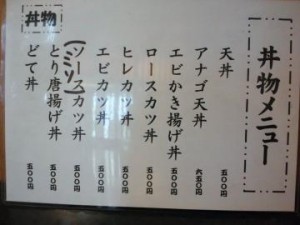 丼物メニュー
天丼 五〇〇円
アナゴ天丼 六五〇円
エビかき揚げ丼 五〇〇円
ロースカツ丼 五〇〇円
ヒレカツ丼 五〇〇円
エビカツ丼 五〇〇円
ソースカツ丼 五〇〇円
(ミソ)
とり唐揚げ丼 五〇〇円
どて丼 五〇〇円
丼物